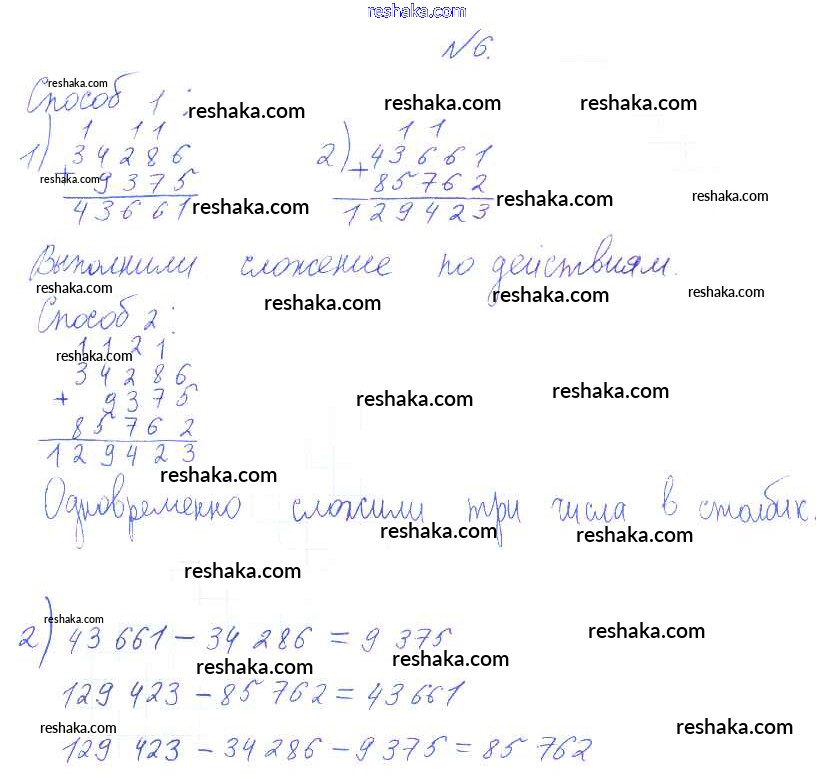 reshaka.com
№6.
reshaka.com
Способ 1:
reshaka.com reshaka.com reshaka.com
1 11 11
1) 34286 2) 43661
+ +
reshaka.com 9375 85762
43661 reshaka.com 129423 reshaka.com reshaka.com
Выполнили сложение по действиям.
reshaka.com reshaka.com reshaka.com reshaka.com
Способ 2:
1121
reshaka.com
34286
+ 9375 reshaka.com reshaka.com
85762
129423
reshaka.com
Одновременно сложили три числа в столбик.
reshaka.com reshaka.com
reshaka.com
reshaka.com
2) 43 661 - 34 286 = 9 375 reshaka.com
reshaka.com reshaka.com
129 423 - 85 762 = 43 661
reshaka.com reshaka.com
129 423 - 34 286 - 9 375 = 85 762